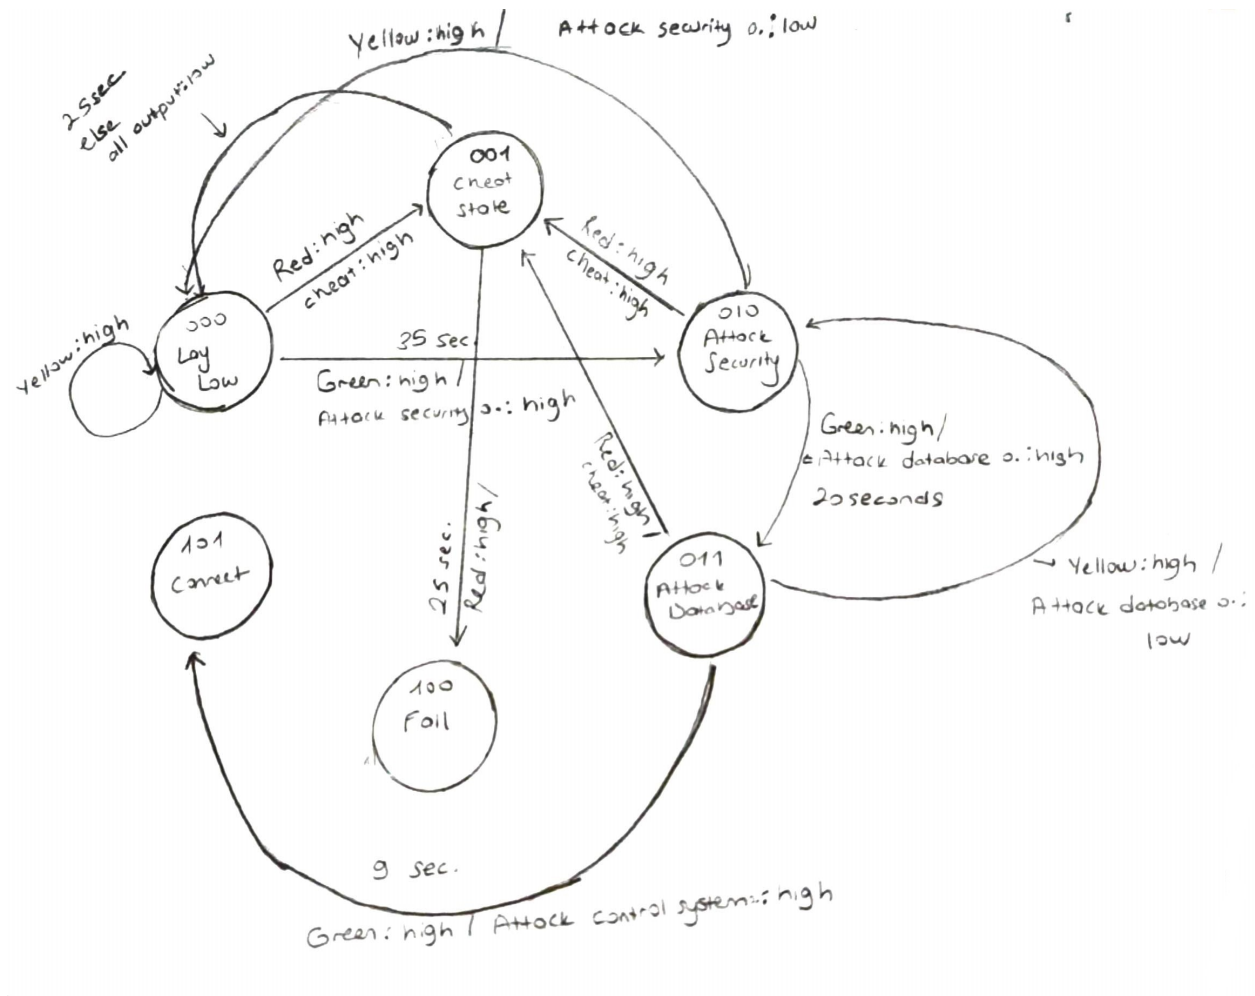 Yellow:high /
Attack security o.:low
25sec
else
all output:low
001
cheat
state
Red:high
cheat:high
Red:high
cheat:high
000
Lay
Low
Yellow:high
35 sec.
Green:high /
Attack security o.: high
010
Attack
Security
Green:high/
Attack database o.:high
20seconds
Red:high
cheat:high
25 sec.
Red:high/
101
Connect
011
Attack
Database
Yellow:high /
Attack database o.:
low
100
Foil
9 sec.
Green: high / Attack control system:high